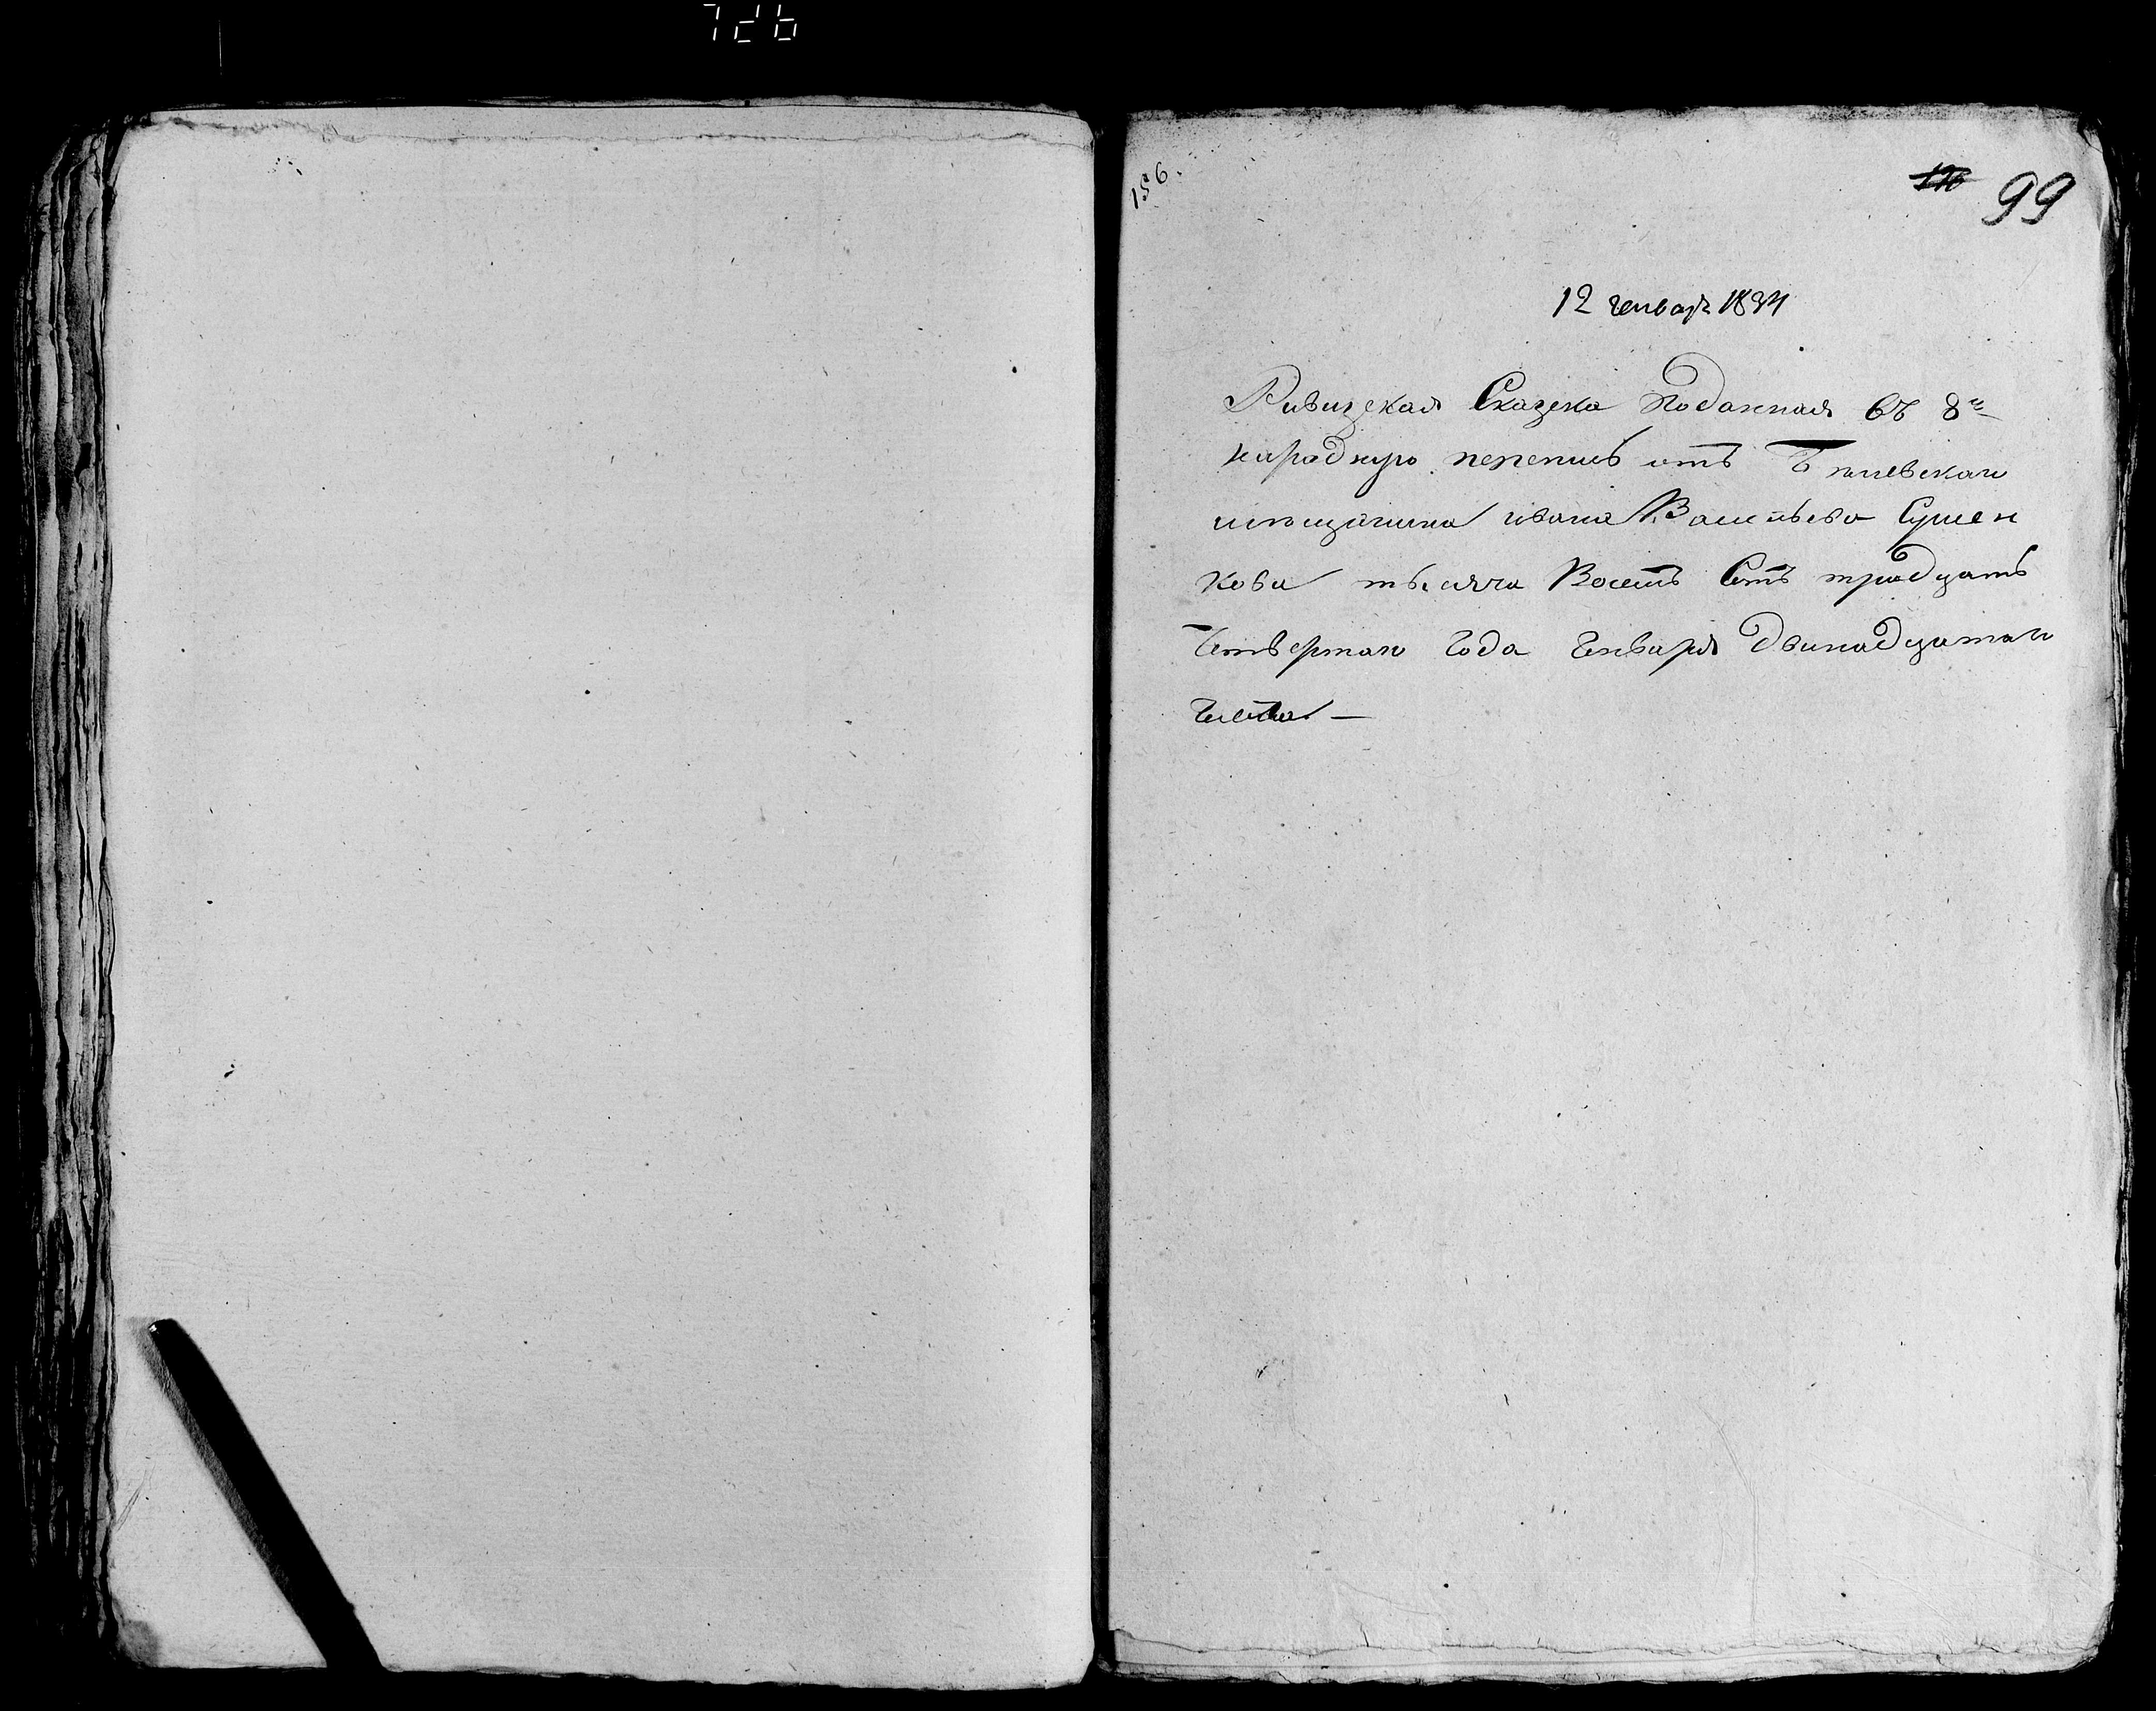 726
156.
99
12 генваря 1834
Ривизская Сказска Поданная въ 8ю
народную перепись отъ Бѣлевскаго
мѣщанина ивана Васильева Сушен
кова тысяча Восемь Сотъ тридцать
Четвертаго Года Генваря Двинадцатаго
Числа. —